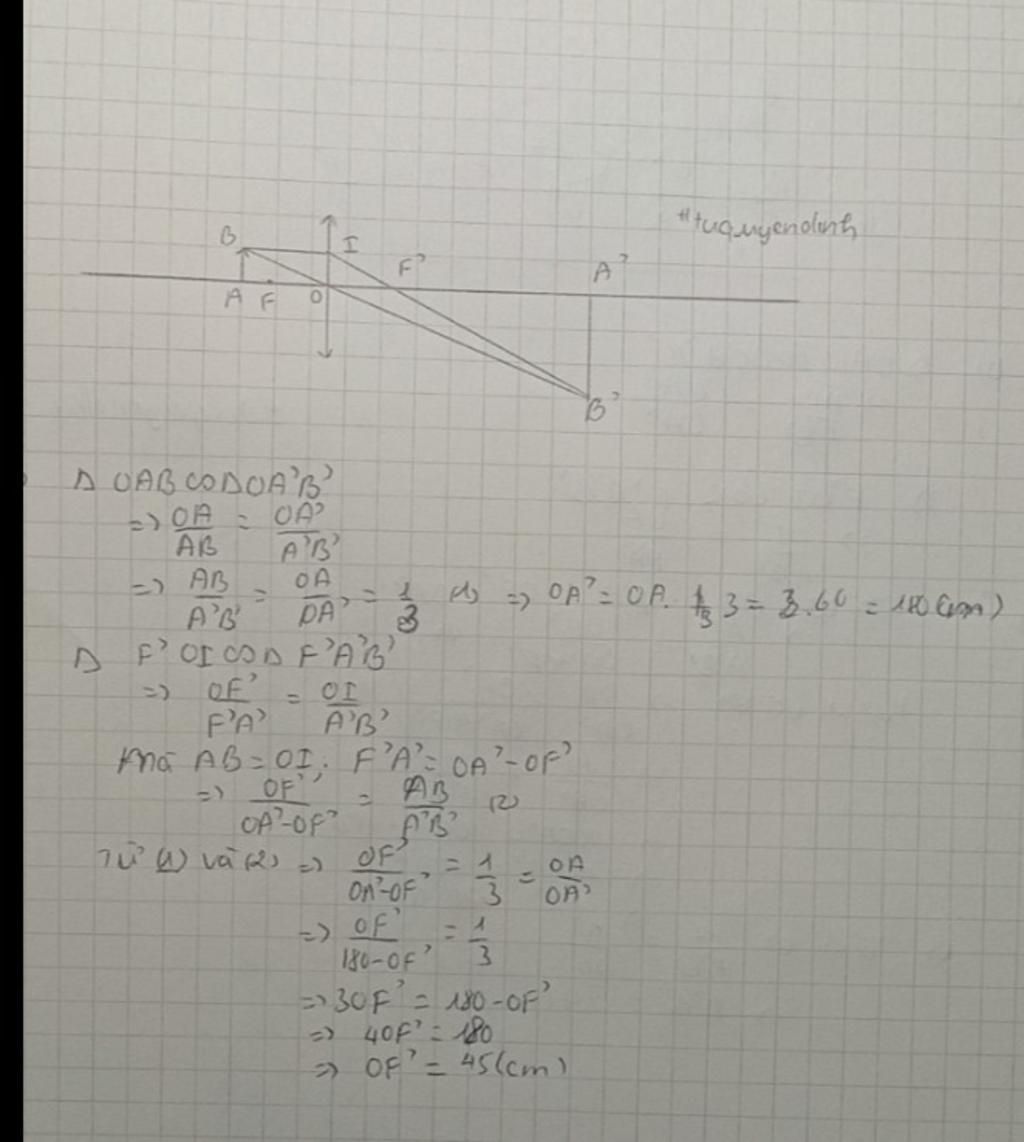 "tuquyendinh
B I F' A'
A F O
B'
Δ OAB ∽ Δ OA'B'
=> OA/AB = OA'/A'B'
=> AB/A'B' = OA/OA' = 1/3 (1) => OA' = OA. 3 = 3.60 = 180 (cm)
Δ F'OI ∽ Δ F'A'B'
=> OF'/F'A' = OI/A'B'
Mà AB = OI; F'A' = OA' - OF'
=> OF'/OA'-OF' = AB/A'B' (2)
Từ (1) và (2) => OF'/OA'-OF' = 1/3 = OA/OA'
=> OF'/180-OF' = 1/3
=> 3OF' = 180 - OF'
=> 4OF' = 180
=> OF' = 45 (cm)